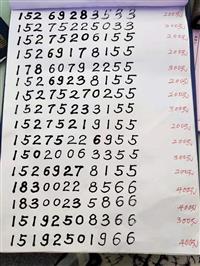 15269283533
15275225033
15275206155 200元
15269178155 200元
17860792255 300元
15269238155 200元
15275270255 200元
15275233155
15275219155 200元
15275226955 200元
15020063355 300元
15269278155 200元
18300228566 400元
18300235866 400元
15192508366 300元
15192501966 400元